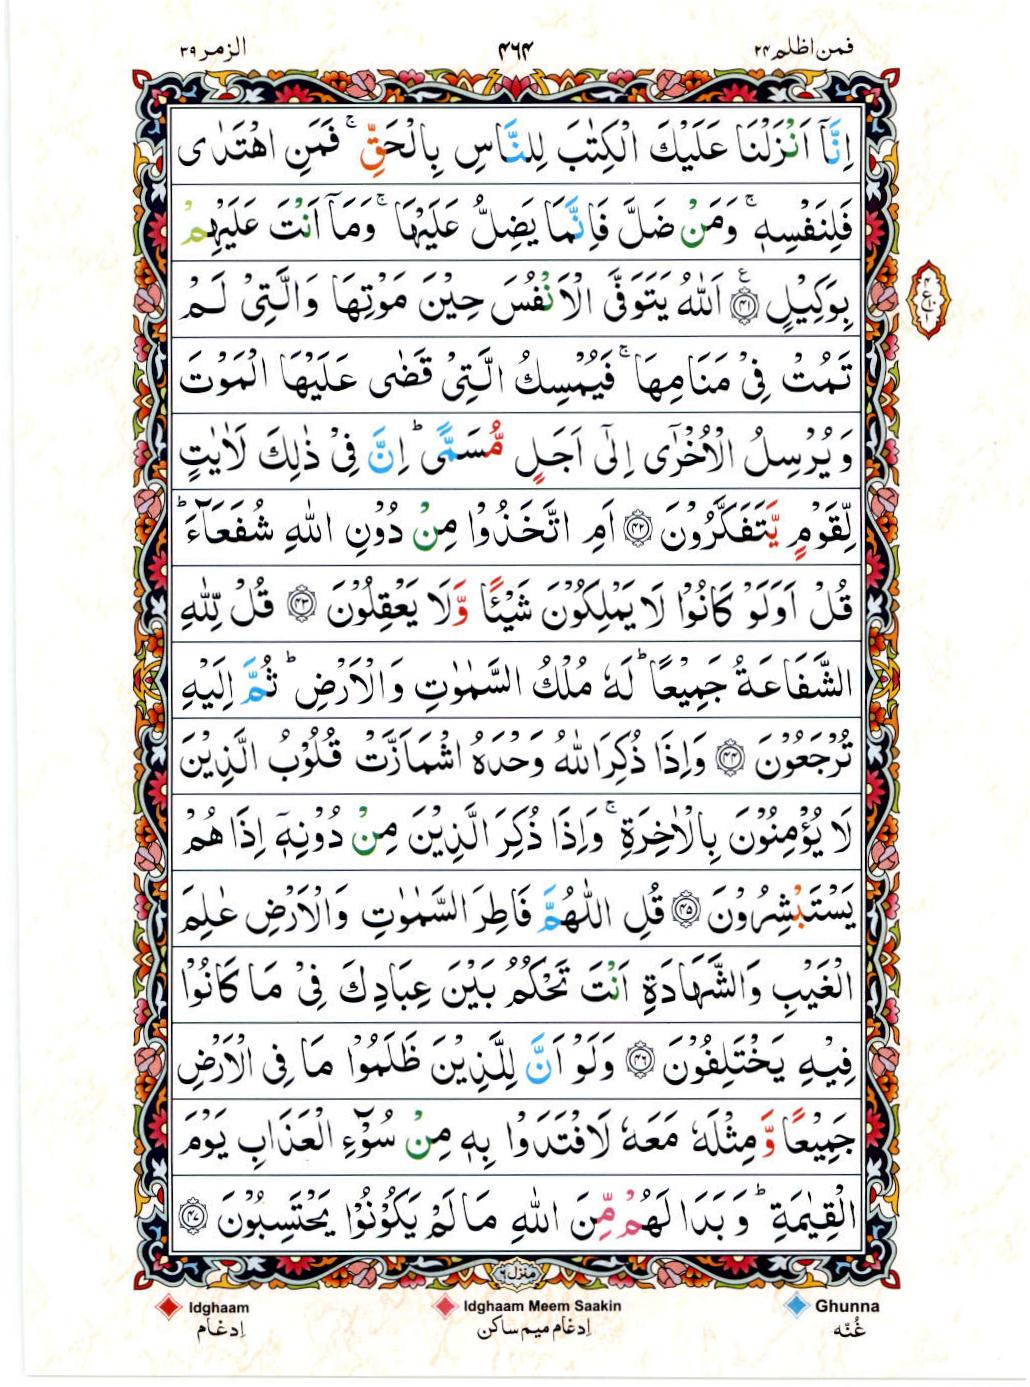 فمن اظلم ۲۴
۴۶۴
الزمر ۳۹
اِنَّاۤ اَنْزَلْنَا عَلَيْكَ الْكِتٰبَ لِلنَّاسِ بِالْحَقِّ ۚ فَمَنِ اهْتَدٰى
فَلِنَفْسِهٖ ۚ وَمَنْ ضَلَّ فَاِنَّمَا يَضِلُّ عَلَيْهَا ۚ وَمَاۤ اَنْتَ عَلَيْهِمْ
بِوَكِيْلٍ ﴿۴۱﴾ اَللّٰهُ يَتَوَفَّى الْاَنْفُسَ حِيْنَ مَوْتِهَا وَالَّتِيْ لَمْ
تَمُتْ فِيْ مَنَامِهَا ۚ فَيُمْسِكُ الَّتِيْ قَضٰى عَلَيْهَا الْمَوْتَ
وَيُرْسِلُ الْاُخْرٰۤى اِلٰۤى اَجَلٍ مُّسَمًّى ؕ اِنَّ فِيْ ذٰلِكَ لَاٰيٰتٍ
لِّقَوْمٍ يَّتَفَكَّرُوْنَ ﴿۴۲﴾ اَمِ اتَّخَذُوْا مِنْ دُوْنِ اللّٰهِ شُفَعَآءَ ؕ
قُلْ اَوَلَوْ كَانُوْا لَا يَمْلِكُوْنَ شَيْئًا وَّلَا يَعْقِلُوْنَ ﴿۴۳﴾ قُلْ لِّلّٰهِ
الشَّفَاعَةُ جَمِيْعًا ؕ لَهٗ مُلْكُ السَّمٰوٰتِ وَالْاَرْضِ ؕ ثُمَّ اِلَيْهِ
تُرْجَعُوْنَ ﴿۴۴﴾ وَاِذَا ذُكِرَ اللّٰهُ وَحْدَهُ اشْمَاَزَّتْ قُلُوْبُ الَّذِيْنَ
لَا يُؤْمِنُوْنَ بِالْاٰخِرَةِ ۚ وَاِذَا ذُكِرَ الَّذِيْنَ مِنْ دُوْنِهٖۤ اِذَا هُمْ
يَسْتَبْشِرُوْنَ ﴿۴۵﴾ قُلِ اللّٰهُمَّ فَاطِرَ السَّمٰوٰتِ وَالْاَرْضِ عٰلِمَ
الْغَيْبِ وَالشَّهَادَةِ اَنْتَ تَحْكُمُ بَيْنَ عِبَادِكَ فِيْ مَا كَانُوْا
فِيْهِ يَخْتَلِفُوْنَ ﴿۴۶﴾ وَلَوْ اَنَّ لِلَّذِيْنَ ظَلَمُوْا مَا فِى الْاَرْضِ
جَمِيْعًا وَّمِثْلَهٗ مَعَهٗ لَافْتَدَوْا بِهٖ مِنْ سُوْٓءِ الْعَذَابِ يَوْمَ
الْقِيٰمَةِ ؕ وَبَدَا لَهُمْ مِّنَ اللّٰهِ مَا لَمْ يَكُوْنُوْا يَحْتَسِبُوْنَ ﴿۴۷﴾
منزل ۶
Ghunna
غُنّه
Idghaam Meem Saakin
إدغام ميم ساكن
Idghaam
إدغام